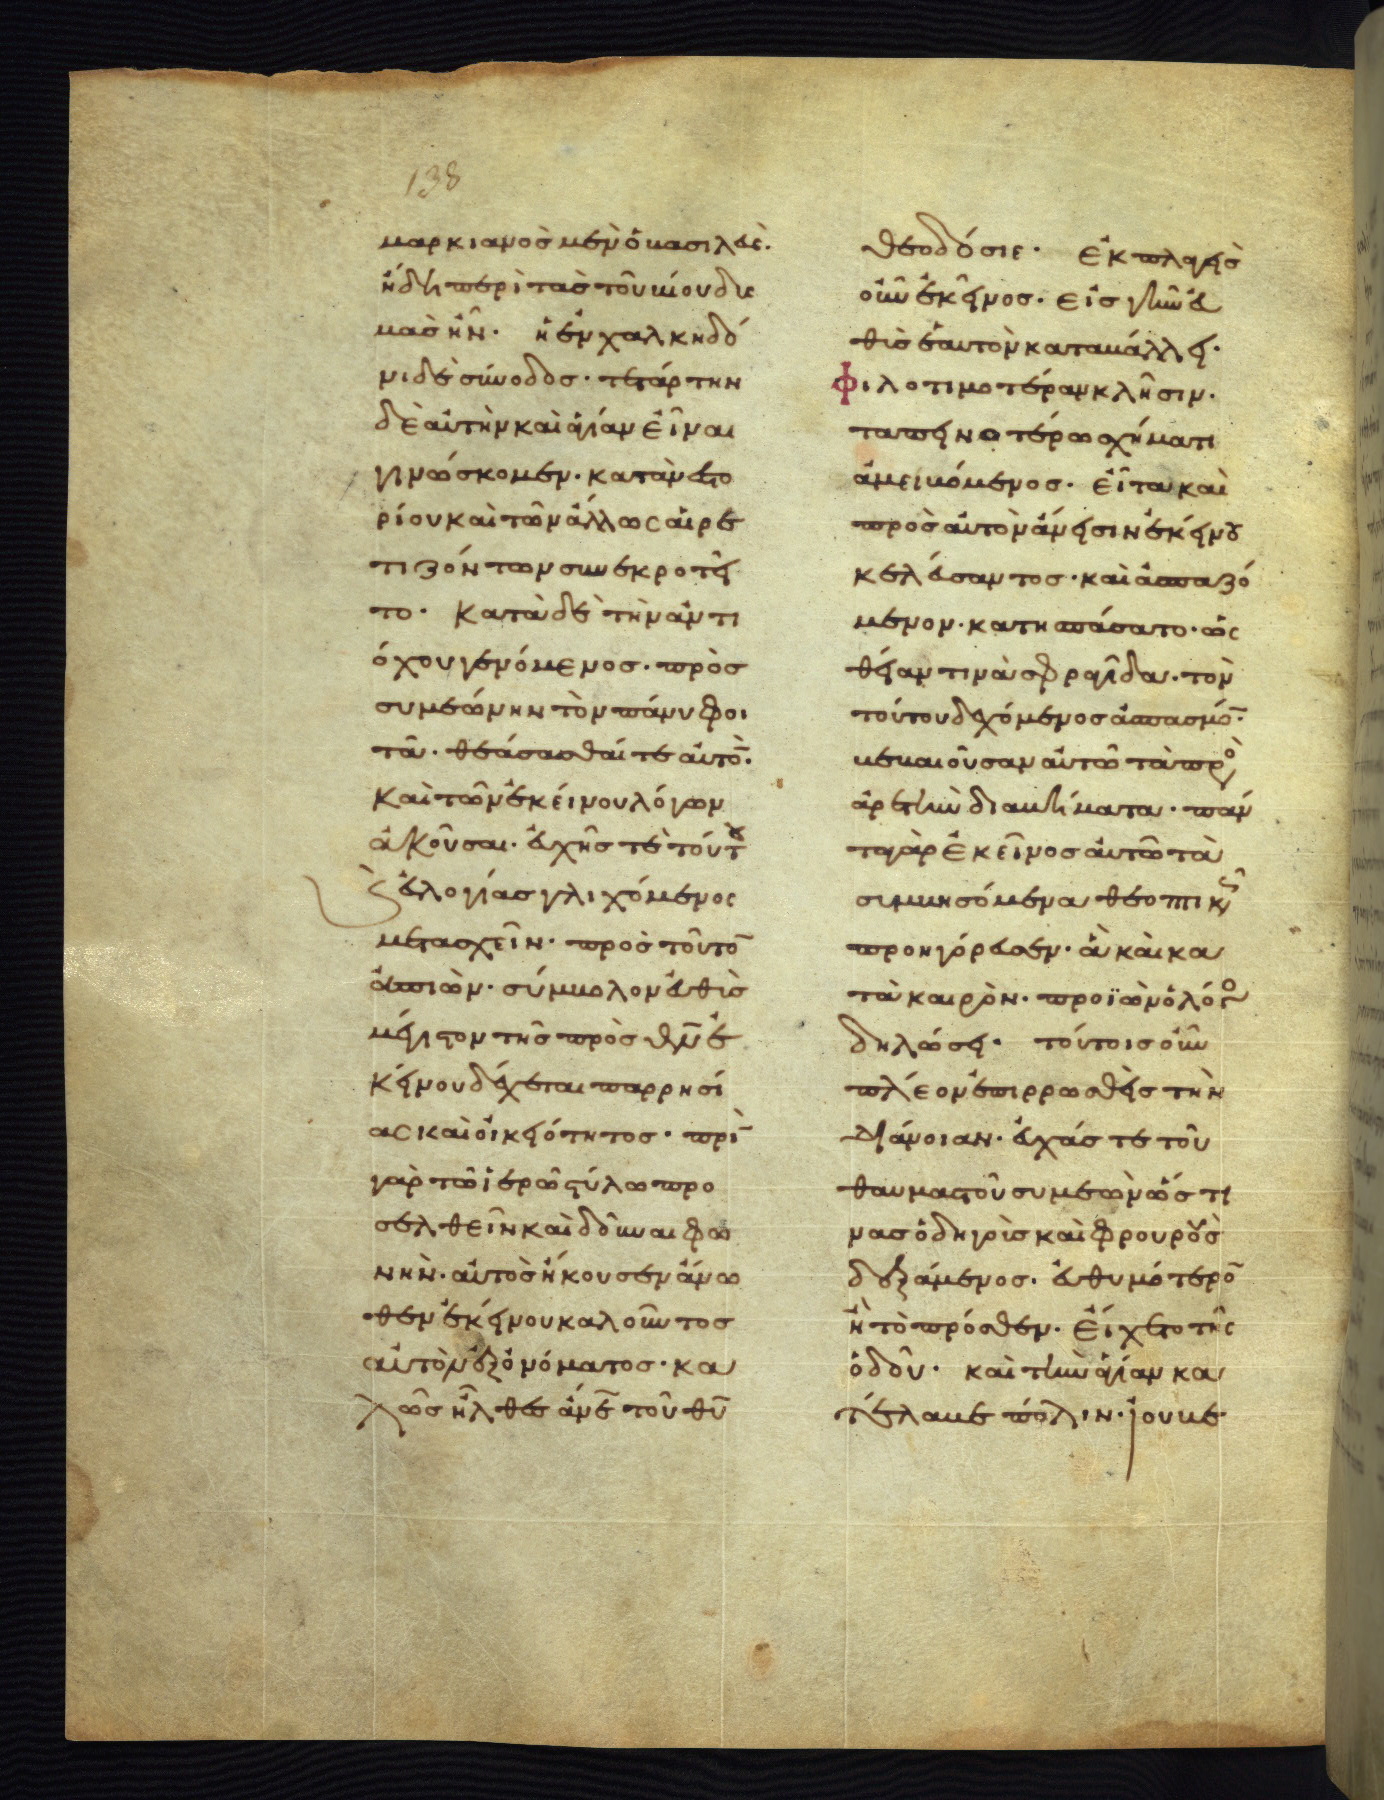 138
μαρκιανὸς μὲν ὁ βασιλεὺς.
ἤδη περὶ τὰς τοῦ βίου δυσ
μὰς ἦν. ἡ ἐν χαλκηδό
νι δὲ σύνοδος. τετάρτην
δὲ αὐτὴν καὶ ἁγίαν εἶναι
γινώσκομεν. κατὰ νεστο
ρίου καὶ τῶν ἄλλως αἱρε
τιζόντων συνεκροτεῖ
το. Κατὰ δὲ τὴν ἀντι
όχου γενόμενος. πρὸς
συμεώνην τὸν πάνυ φοι
τᾶ. θεάσασθαί τε αὐτὸ̅.
Καὶ τῶν ἐκείνου λόγων
ἀκοῦσαι. εὐχῆς τὲ τούτου
ς εὐλογίας γλιχόμενος
μετασχεῖν. πρὸς τοῦτο̅
ἀπιὼν. σύμβολον εὐθὺς
μέγιστον τῆς πρὸς θν̅ ἐ
κείνου δέχεται παρρησί
ας καὶ οἰκειότητος. πρὶ̅
γὰρ τῶ ἱερῶ στύλω προ
σελθεῖν καὶ δοῦναι φω
νὴν. αὐτὸς ἤκουσεν ἄνω
θεν ἐκείνου καλοῦντος
αὐτὸν ἐξ ὀνόματος. κα
λῶς ἦλθες ἄνε̅ τοῦ θυ̅
θεοδόσιε. Ἐκπλαγεὶς
οὖν ἐκεῖνος. εἰς γῆν εὐ
θὺς ἑαυτὸν καταβάλλει.
Φιλοτιμοτέραν κλῆσιν.
ταπεινοτέρω σχήματι
ἀμειβόμενος. Εἶτα καὶ
πρὸς αὐτὸν ἄνεισιν ἐκείνου
κελεύσαντος. καὶ ἀσπαζό
μενον. κατησπάσατο. ὡς
θείαν τινὰ σφραγῖδα. τὸν
τούτου δεχόμενος ἀσπασμό̅.
βεβαιοῦσαν αὐτῶ τὰ πρὸς
ἀρετὴν διαβήματα. πάν
τα γὰρ ἐκεῖνος αὐτῶ τὰ
συμβησόμενα θεοπτικῶς
προηγόρευσεν. ἃ καὶ κα
τὰ καιρὸν. προϊὼν ὁ λόγος
δηλώσει. τούτοις οὖν
πλέον ἐπιρρωσθεὶς τὴν
διάνοιαν. εὐχάς τε τοῦ
θαυμαστοῦ συμεὼν ὥς τι
νας ὁδηγοὺς καὶ φρουροὺς
δεξάμενος. εὐθυμότερο̅
ἢ τὸ πρόσθεν. Εἴχετο τῆς
ὁδοῦ. καὶ τὴν ἁγίαν κα
τέλαβε πόλιν. ἰουβε